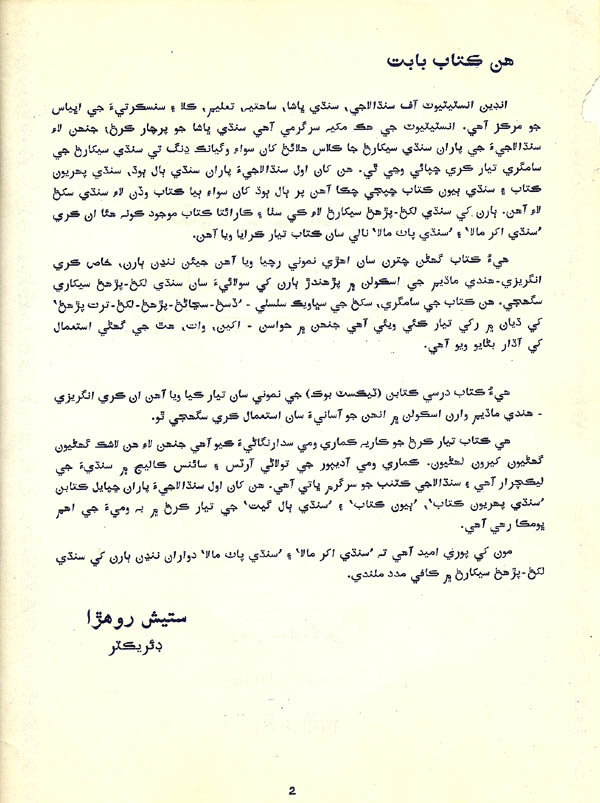 هن ڪتاب بابت
انڊين انسٽيٽيوٽ آف سنڌالاجي، سنڌي ڀاشا، ساهتيہ، تعليم، ڪلا ۽ سنسڪرتيءَ جي اڀياس
جو مرڪز آهي. انسٽيٽيوٽ جي هڪ مکيہ سرگرمي آهي سنڌي ڀاشا جو پرچار ڪرڻ؛ جنهن لاءِ
سنڌالاجيءَ جي پاران سنڌي سيکارڻ جا ڪلاس هلائڻ کان سواءِ وگيانڪ ڍنگ تي سنڌي سيکارڻ جي
سامگري تيار ڪري ڇپائي وڃي ٿي. هن کان اول سنڌالاجيءَ پاران سنڌي ٻال ٻوڌ، سنڌي پهريون
ڪتاب ۽ سنڌي ٻيون ڪتاب ڇپجي چڪا آهن پر ٻال ٻوڌ کان سواءِ ٻيا ڪتاب وڏن لاءِ سنڌي سکڻ
لاءِ آهن. ٻارن کي سنڌي لکڻ-پڙهڻ سيکارڻ لاءِ ڪي سٺا ۽ ڪارائتا ڪتاب موجود ڪونہ هئا ان ڪري
'سنڌي اکر مالا' ۽ 'سنڌي پاٺ مالا' نالي سان ڪتاب تيار ڪرايا ويا آهن.
هيءُ ڪتاب گهڻن چترن سان اهڙي نموني رچيا ويا آهن جيئن ننڍن ٻارن، خاص ڪري
انگريزي-هندي ماڌيم جي اسڪولن ۾ پڙهندڙ ٻارن کي سولائيءَ سان سنڌي لکڻ-پڙهڻ سيکاري
سگهجي. هن ڪتاب جي سامگري، سکڻ جي سڀاويڪ سلسلي - 'ڏسڻ-سڃاڻڻ-پڙهڻ-لکڻ-ترت پڙهڻ'
کي ڌيان ۾ رکي تيار ڪئي ويئي آهي جنهن ۾ حواسن - اکين، وات، هٿ جي گهڻي استعمال
کي آڌار بڻايو ويو آهي.
هيءُ ڪتاب درسي ڪتابن (ٽيڪسٽ بوڪ) جي نموني سان تيار ڪيا ويا آهن ان ڪري انگريزي
- هندي ماڌيم وارن اسڪولن ۾ انهن جو آسانيءَ سان استعمال ڪري سگهجي ٿو.
هي ڪتاب تيار ڪرڻ جو ڪاريہ ڪماري ومي سدارنگاڻيءَ ڪيو آهي جنهن لاءِ هن لاشڪ گهڻيون
گهڻيون کيرون لهڻيون. ڪماري ومي آديپور جي تولاڻي آرٽس ۽ سائنس ڪاليج ۾ سنڌيءَ جي
ليڪچرار آهي ۽ سنڌالاجي ڪٽنب جو سرگرم ڀاتي آهي. هن کان اول سنڌالاجيءَ پاران ڇپايل ڪتابن
'سنڌي پهريون ڪتاب'، 'ٻيون ڪتاب' ۽ 'سنڌي ٻال گيت' جي تيار ڪرڻ ۾ بہ وميءَ جي اهم
ڀومڪا رهي آهي.
مون کي پوري اميد آهي تہ 'سنڌي اکر مالا' ۽ 'سنڌي پاٺ مالا' دواران ننڍن ٻارن کي سنڌي
لکڻ-پڙهڻ سيکارڻ ۾ ڪافي مدد ملندي.
ستيش روهڙا
ڊئريڪٽر
2